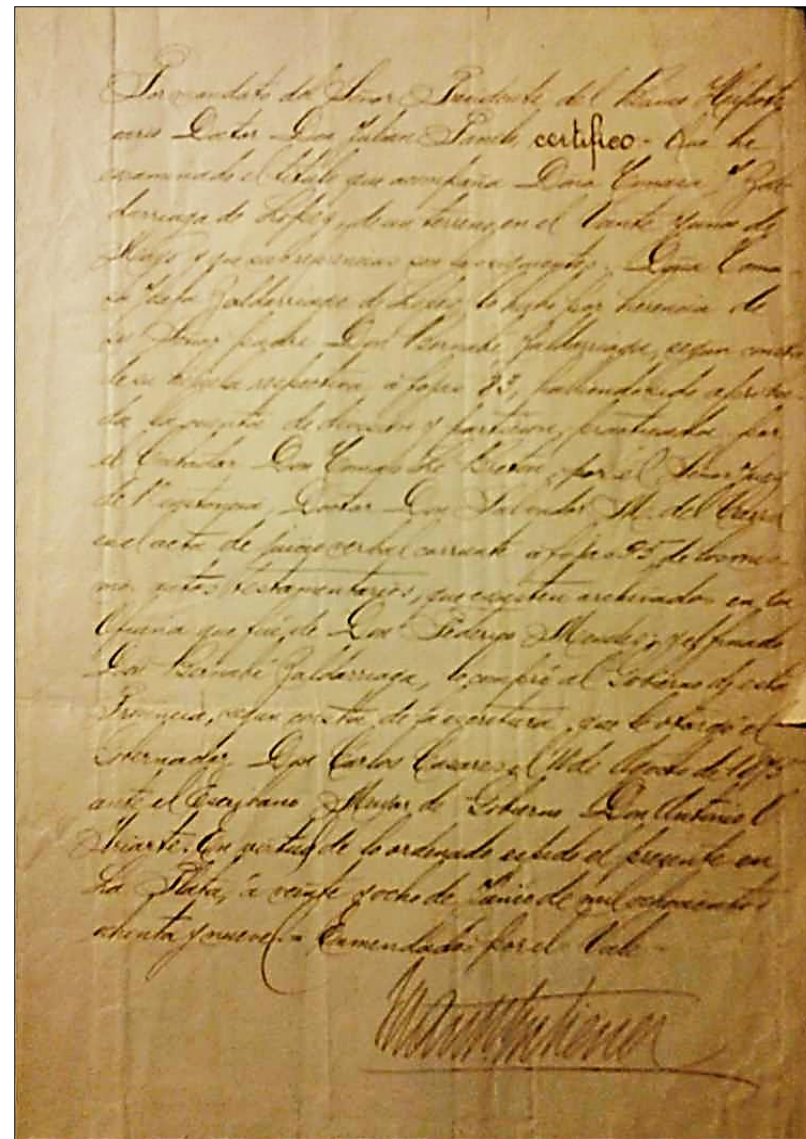 Por mandato del Señor Presidente del Banco Hipote
cario Doctor Don Julian Panelo, certifico - Que he
examinado el título que acompaña Doña Tomasa Y Zal
darriaga de Lopez, de un terreno en el Veinte y cinco de
Mayo y que sus referencias son las siguientes. Doña Toma
sa Zaldarriaga de Lopez lo hubo por herencia de
su Señor padre Don Bernabé Zaldarriaga, segun consta
de su hijuela respectiva, á fojas 83, habiendo sido aproba
da la cuenta de division y particion, practicada por
el Contador Don Tomas Breton, por el Señor Juez
de 1ª instancia, Doctor Don Salvador M. del Carril
en el acta de juicio verbal corriente á fojas 95 de los mis
mos autos testamentarios, que existen archivados en la
Oficina que fué de Don Federigo Mendez, y el finado
Don Bernabé Zaldarriaga, lo compró al Gobierno de esta
Provincia, segun consta de la escritura que le otorgó el
Gobernador Don Carlos Casares el 11 de Agosto de 1875
ante el Escribano Mayor de Gobierno Don Antonio
Iriarte. En virtud de lo ordenado expido el presente en
La Plata, á veinte y ocho de Junio de mil ochocientos
ochenta y nueve. - Enmendado: por el - Vale -